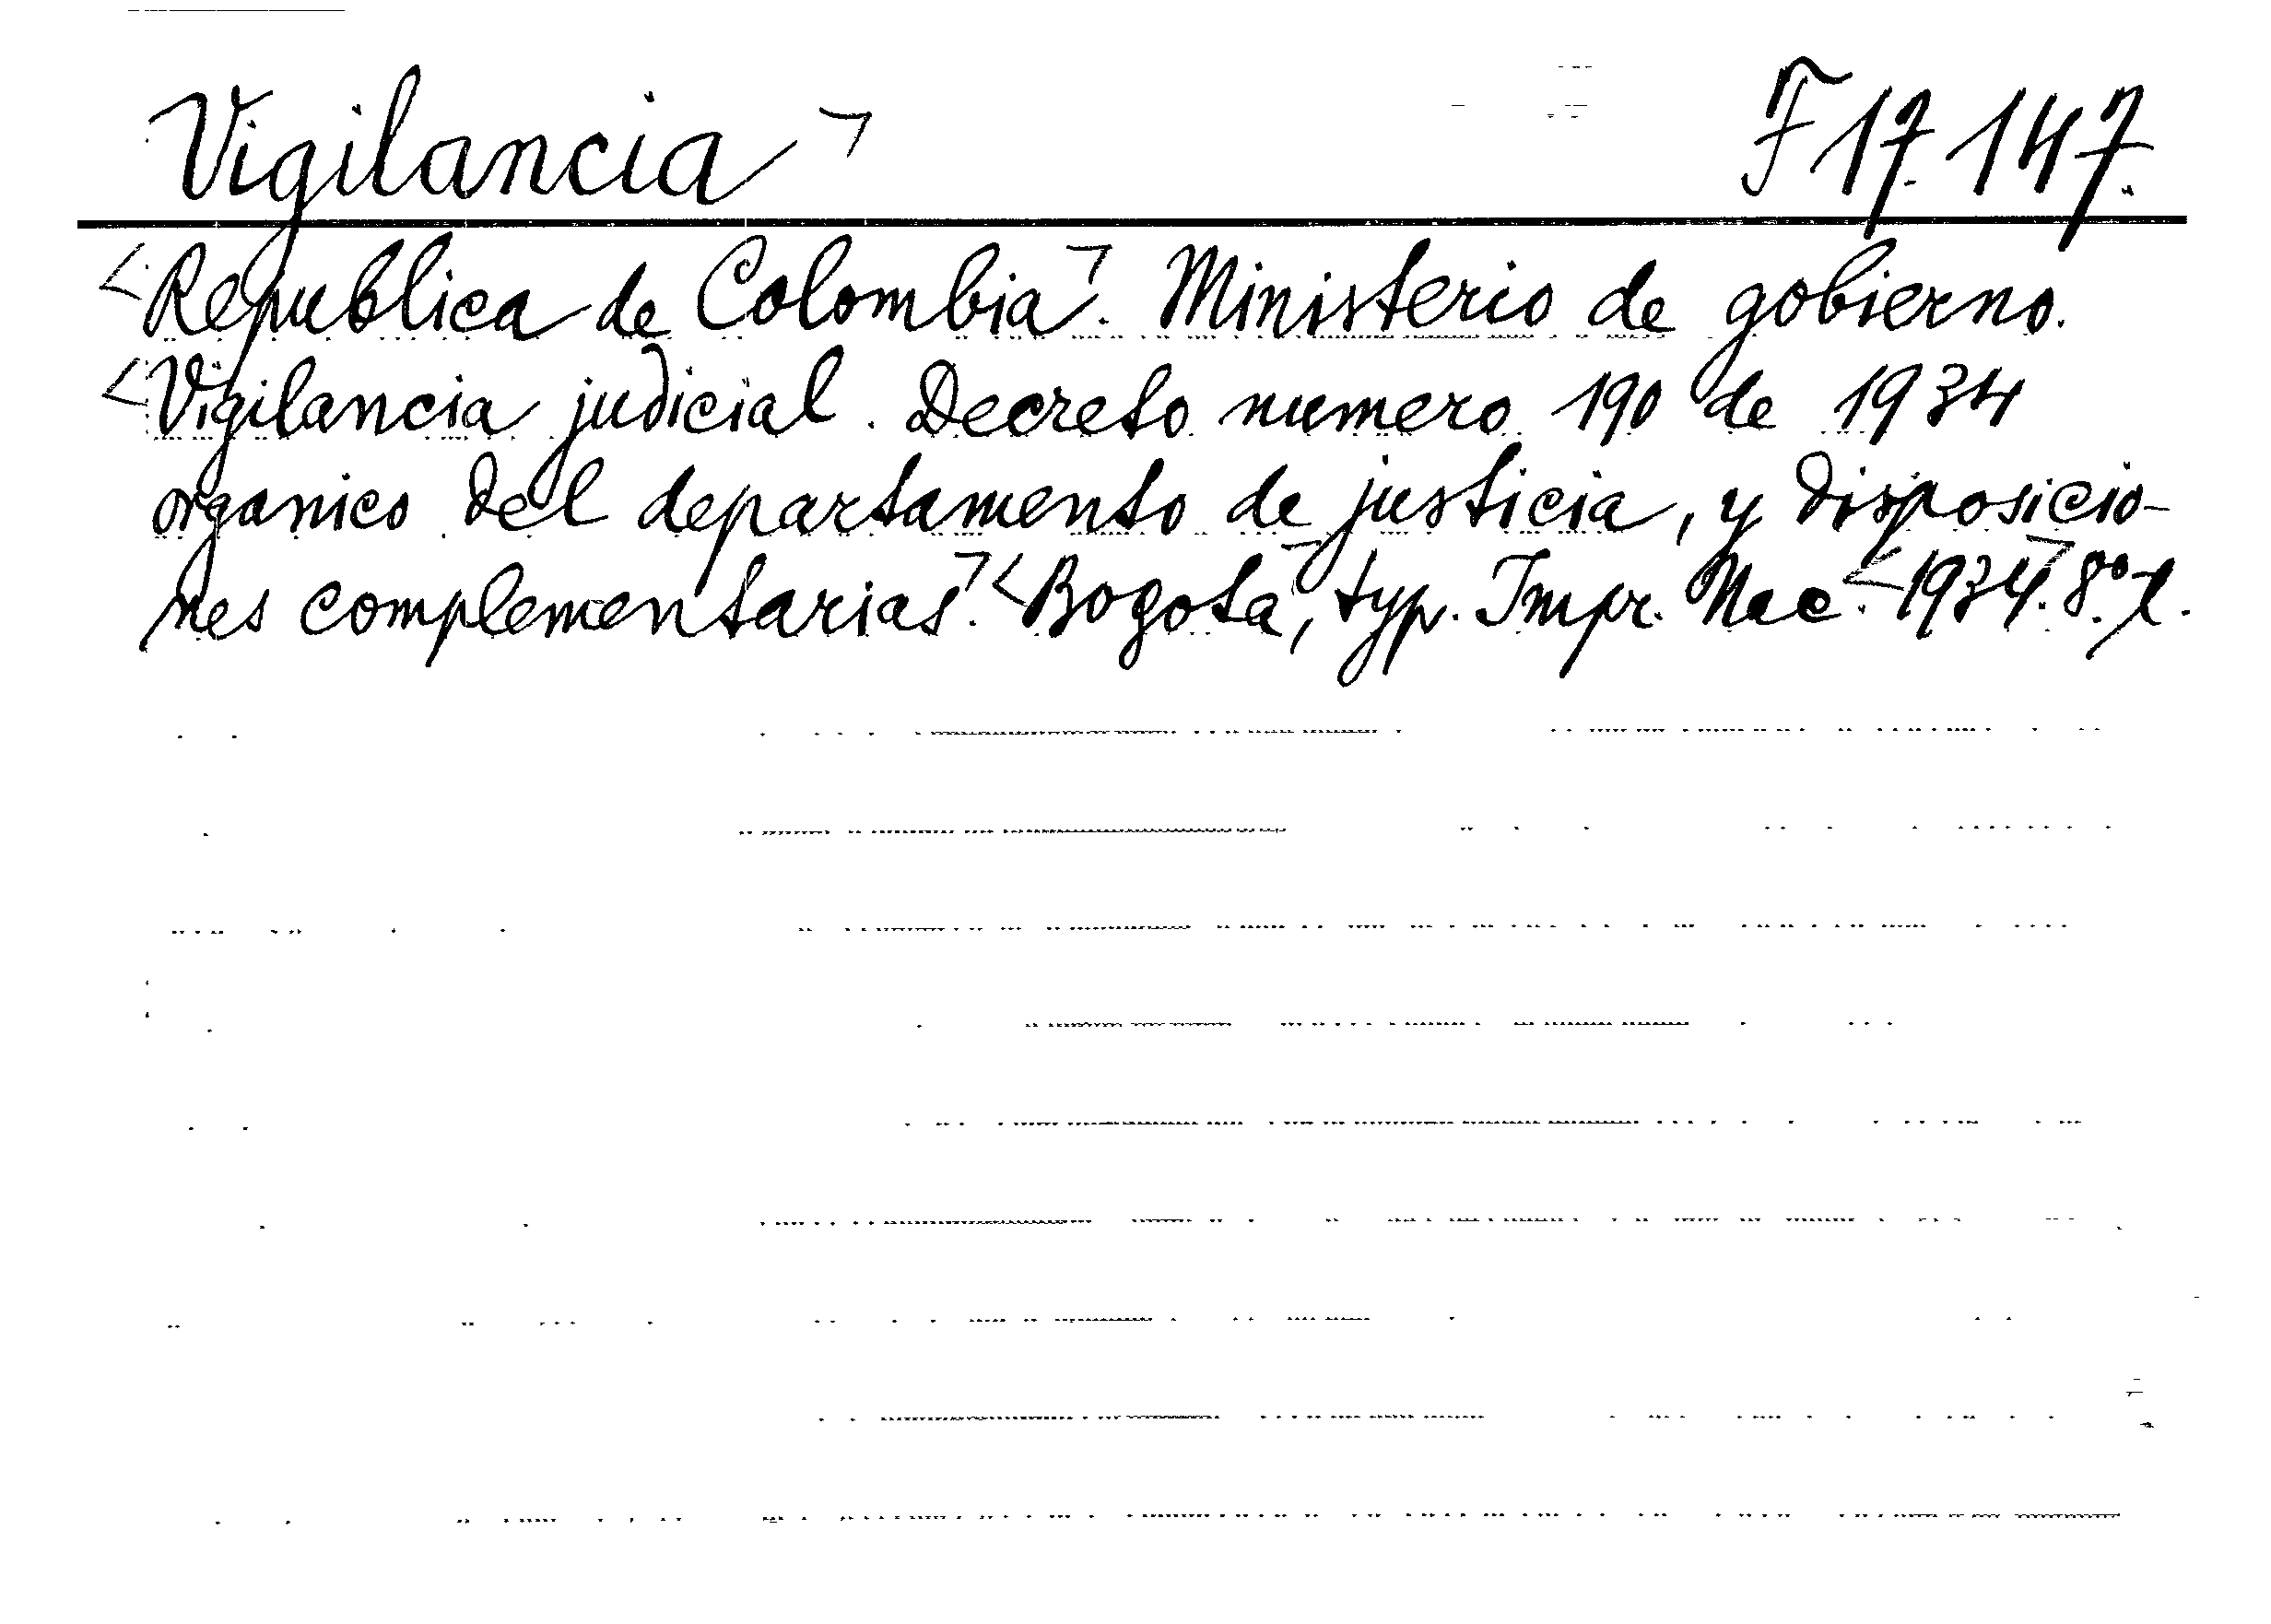 Vigilancia ¬ F 17.147.
<Republica de Colombia¬. Ministerio de gobierno.
<Vigilancia judicial. Decreto numero 190 de 1934
organico del departamento de justicia, y disposicio-
nes complementarias¬. <Bogota¬, typ. Impr. Nac. <1934¬. 8.º